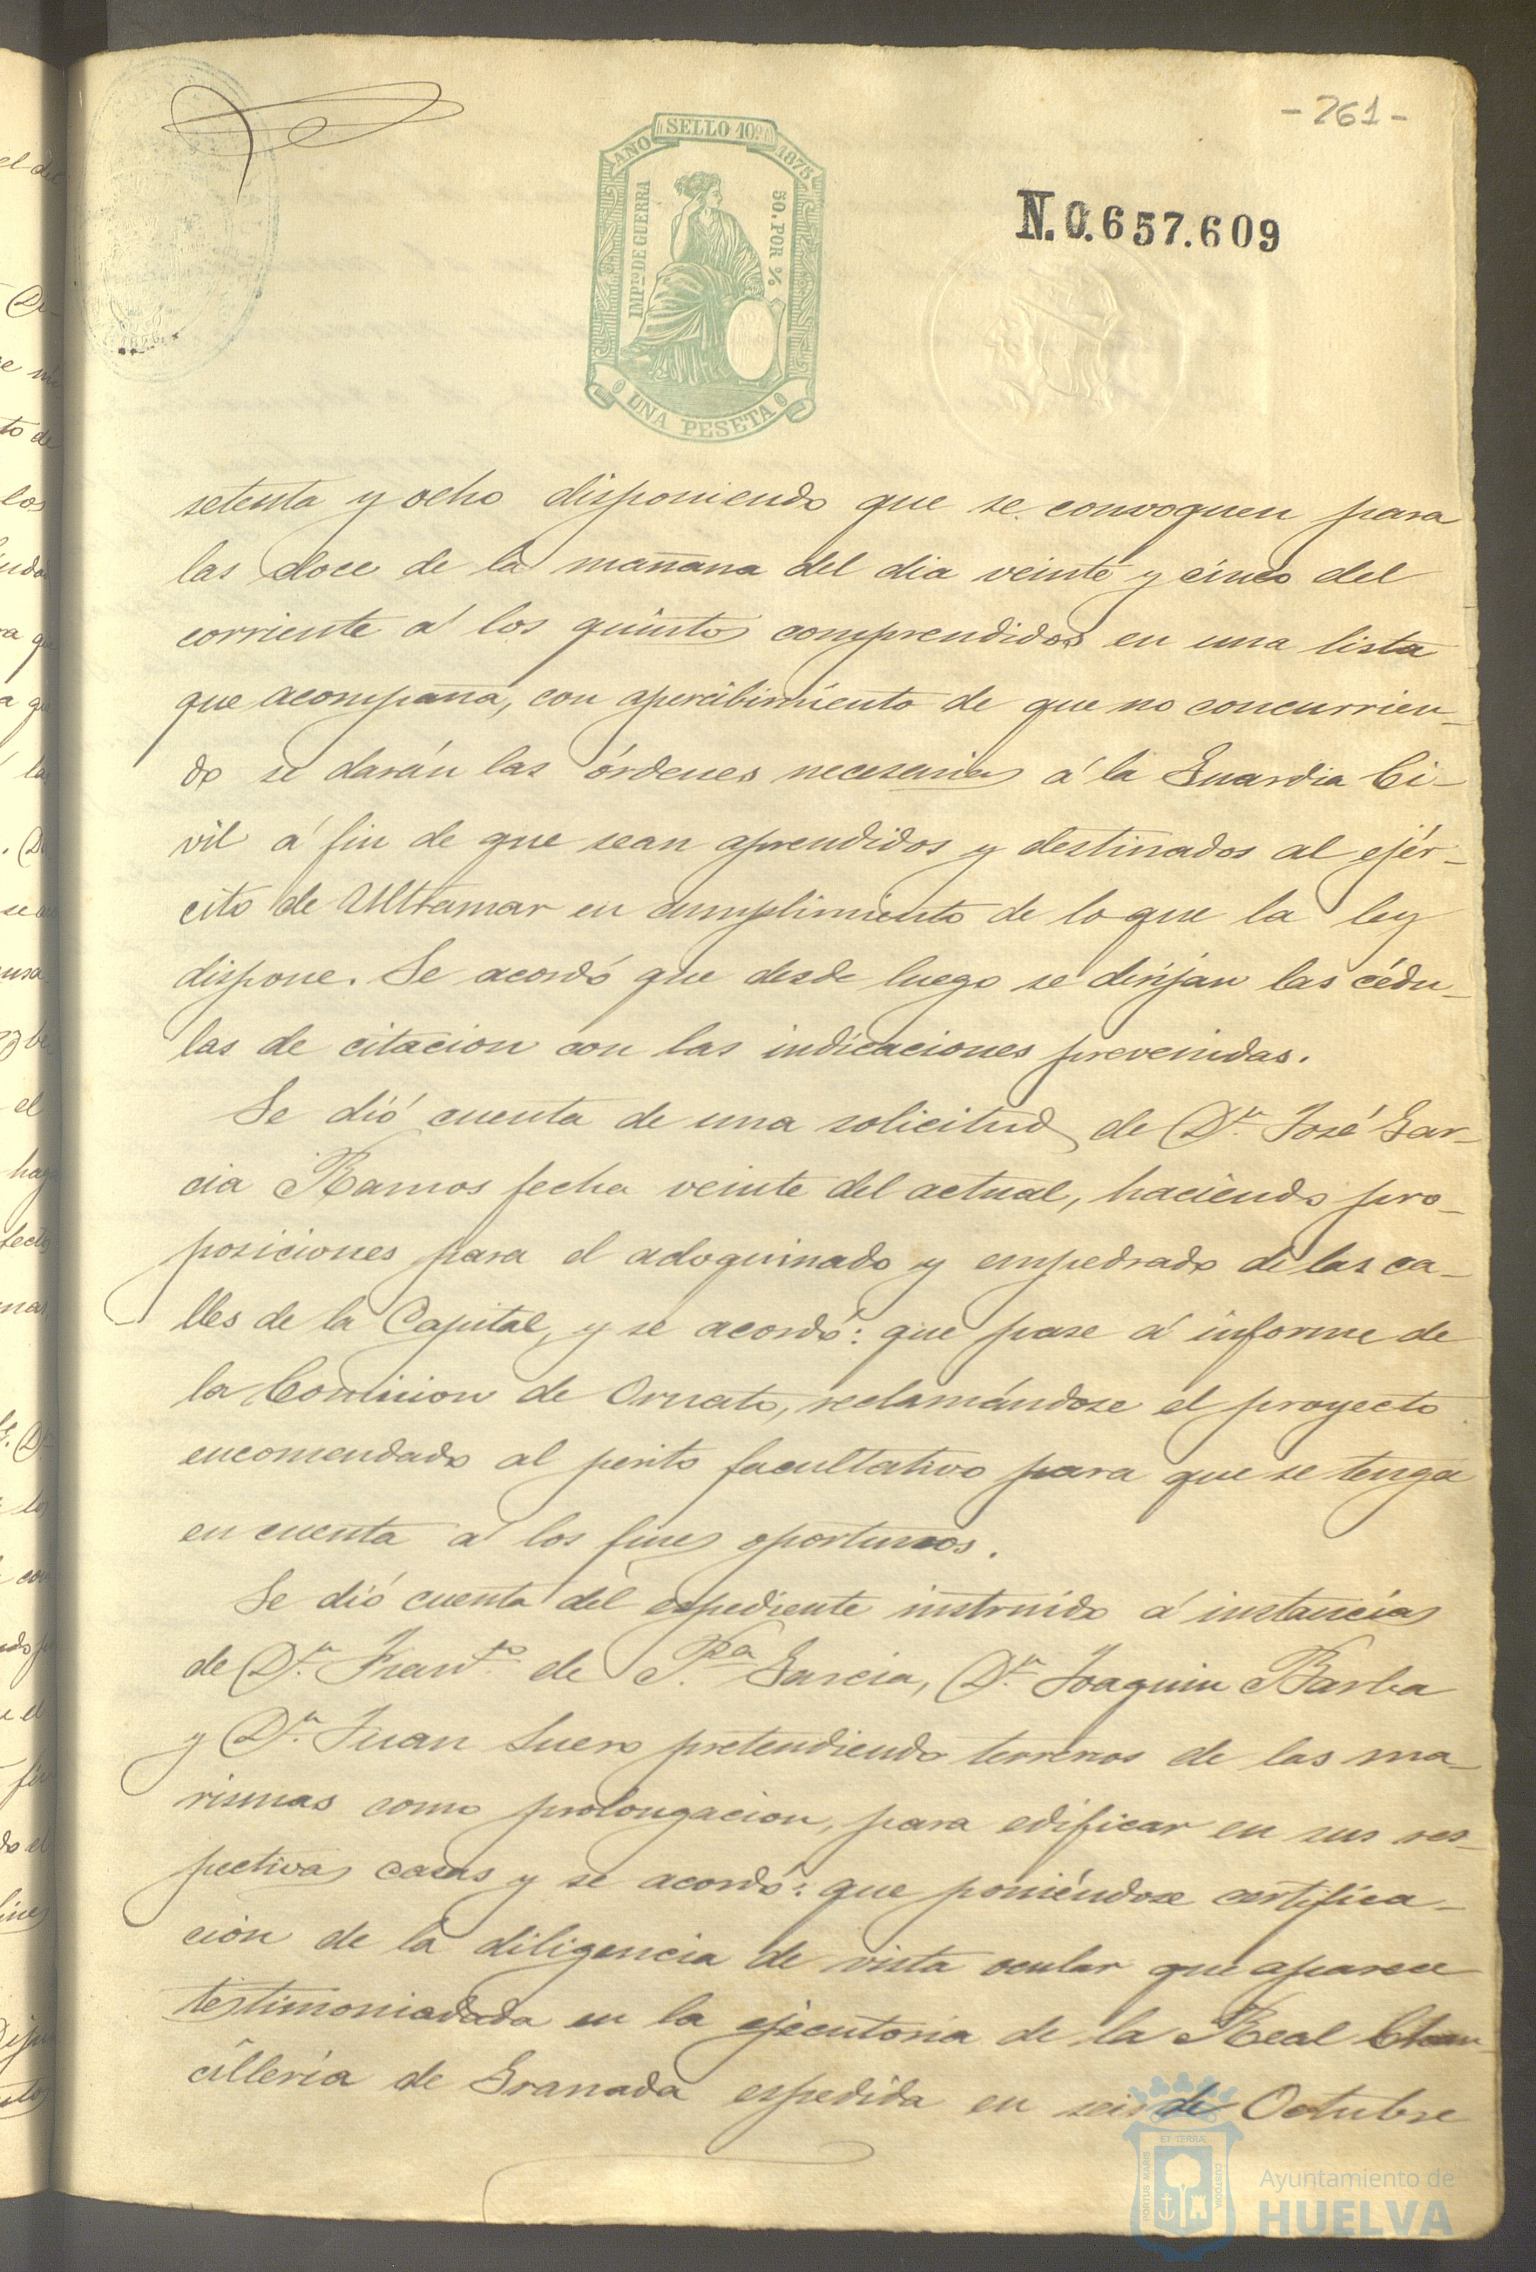 - 261 -
SELLO 10º
AÑO 1875
IMPTO DE GUERRA
50.POR %
UNA PESETA
N.0.657.609
setenta y ocho disponiendo que se convoquen para
las doce de la mañana del dia veinte y cinco del
corriente á los quintos comprendidos en una lista
que acompaña, con apercibimiento de que no concurrien_
do se darán las órdenes necesarias á la Guardia Ci_
vil á fin de que sean aprendidos y destinados al ejér_
cito de Ultramar en cumplimiento de lo que la ley
dispone. Se acordó que desde luego se dirijan las cédu_
las de citacion con las indicaciones prevenidas.
Se dió cuenta de una solicitud de Dn. José Gar_
cia Ramos fecha veinte del actual, haciendo pro_
posiciones para el adoquinado y empedrado de las ca_
lles de la Capital, y se acordó: que pase á informe de
la Comision de Ornato, reclamándose el proyecto
encomendado al perito facultativo para que se tenga
en cuenta á los fines oportunos.
Se dió cuenta del espediente instruido á instancias
de Dn. Franco. de P.a Garcia, Dn. Joaquin Barba
y Dn. Juan Suero pretendiendo terrenos de las ma_
rismas como prolongacion, para edificar en sus res_
pectivas casas y se acordó: que poniéndose certifica_
cion de la diligencia de vista ocular que aparece
testimoniadada en la ejecutoria de la Real Chan_
cilleria de Granada espedida en seis de Octubre
PORTUS MARIS ET TERRÆ CUSTODIA
Ayuntamiento de
HUELVA